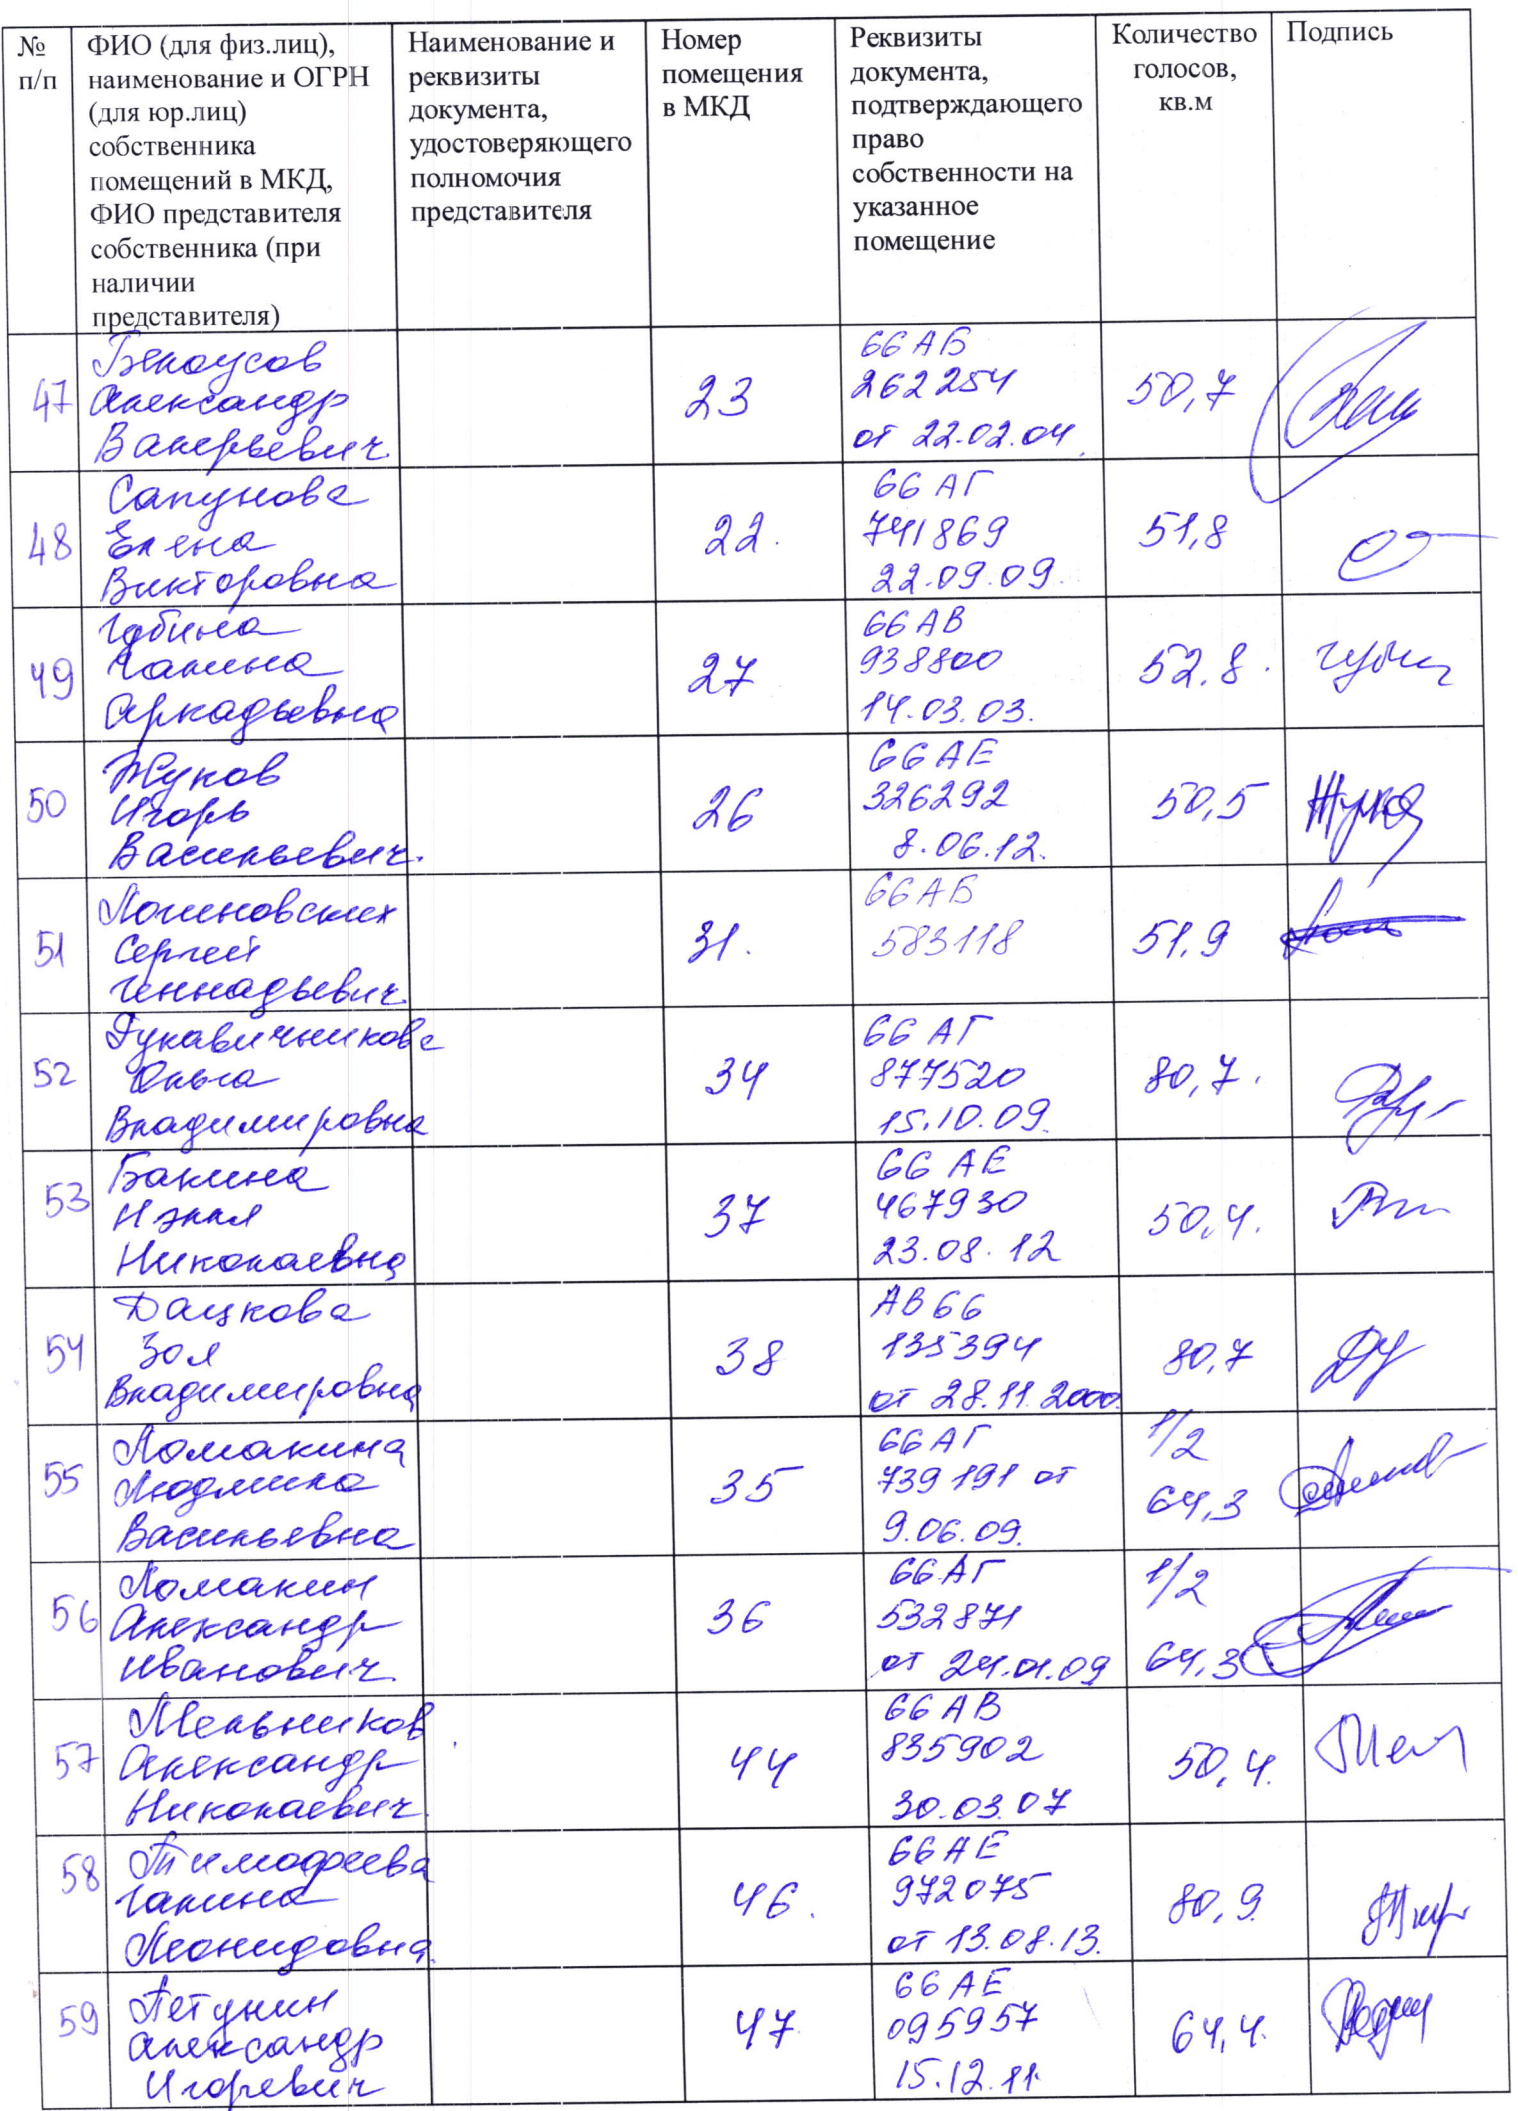 № п/п
ФИО (для физ.лиц),
наименование и ОГРН
(для юр.лиц)
собственника
помещений в МКД,
ФИО представителя
собственника (при
наличии
представителя)
Наименование и
реквизиты
документа,
удостоверяющего
полномочия
представителя
Номер
помещения
в МКД
Реквизиты
документа,
подтверждающего
право
собственности на
указанное
помещение
Количество
голосов,
кв.м
Подпись
47
Белоусов
Александр
Валерьевич
23
66 АБ
262254
от 22.02.04
50,7
48
Сапунова
Елена
Викторовна
22.
66 АГ
741869
22.09.09.
51,8
49
Губина
Галина
Аркадьевна
27
66 АВ
938800
14.03.03.
52.8.
50
Жуков
Игорь
Васильевич.
26
66 АЕ
326292
8.06.12.
50,5
51
Логиновских
Сергей
Геннадьевич
31.
66 АБ
583118
51.9
52
Рукавичникова
Ольга
Владимировна
34
66 АГ
877520
15.10.09.
80,7.
53
Бакина
Нэлля
Николаевна
37
66 АЕ
467930
23.08.12
50,4.
54
Дацкова
Зоя
Владимировна
38
АВ 66
135394
от 28.11.2000
80,7
55
Ломакина
Людмила
Васильевна
35
66 АГ
739191 от
9.06.09.
1/2
64,3
56
Ломакин
Александр
Иванович
36
66 АГ
532871
от 24.01.09
1/2
64,3
57
Мельников
Александр
Николаевич
44
66 АВ
835902
30.03.07
50,4.
58
Тимофеева
Галина
Леонидовна
46.
66 АЕ
972075
от 13.08.13.
80,9
59
Петунин
Александр
Игоревич
47
66 АЕ
095957
15.12.11
64,4.